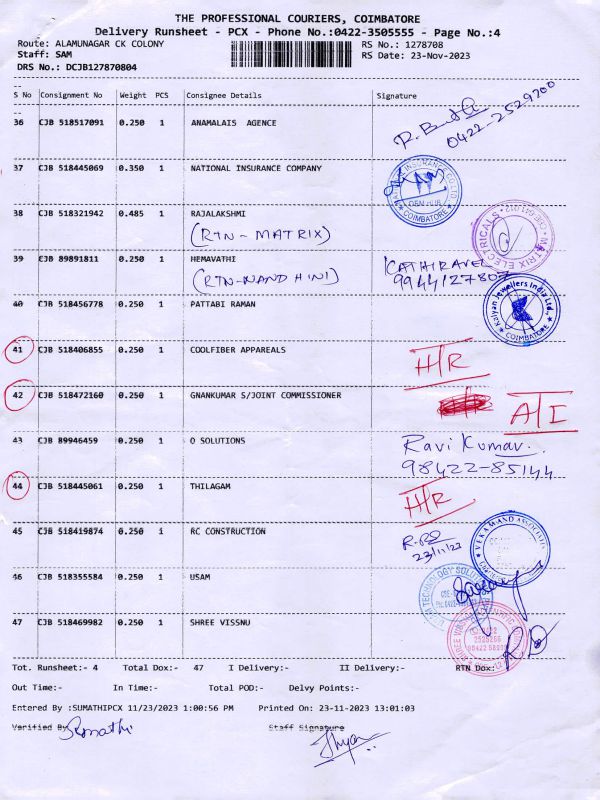 THE PROFESSIONAL COURIERS, COIMBATORE
Delivery Runsheet - PCX - Phone No.:0422-3505555 - Page No.:4
Route: ALAMUNAGAR CK COLONY RS No.: 1278708
Staff: SAM RS Date: 23-Nov-2023
DRS No.: DCJB127870804
S No Consignment No Weight PCS Consignee Details Signature
36 CJB 518517091 0.250 1 ANAMALAIS AGENCE
0422-2529200
37 CJB 518445069 0.350 1 NATIONAL INSURANCE COMPANY
COIMBATORE
38 CJB 518321942 0.485 1 RAJALAKSHMI
(RTN-MATRIX)
MATRIX ELECTRICALS
39 CJB 89891811 0.250 1 HEMAVATHI KATHIRAVEL
(RTN-NANDHINI) 9944127807
40 CJB 518456778 0.250 1 PATTABI RAMAN
Kalyan Jewellers India Ltd.,
COIMBATORE
41 CJB 518406855 0.250 1 COOLFIBER APPAREALS
H/R
42 CJB 518472160 0.250 1 GNANKUMAR S/JOINT COMMISSIONER
A/I
43 CJB 89946459 0.250 1 O SOLUTIONS Ravi Kumar.
98422-85144
44 CJB 518445061 0.250 1 THILAGAM
H/R
45 CJB 518419874 0.250 1 RC CONSTRUCTION
23/11/23
46 CJB 518355584 0.250 1 USAM
47 CJB 518469982 0.250 1 SHREE VISSNU
Tot. Runsheet:- 4 Total Dox:- 47 I Delivery:- II Delivery:- RTN Dox:
Out Time:- In Time:- Total POD:- Delvy Points:-
Entered By :SUMATHIPCX 11/23/2023 1:00:56 PM Printed On: 23-11-2023 13:01:03
Verified By Sumathi Staff Signature